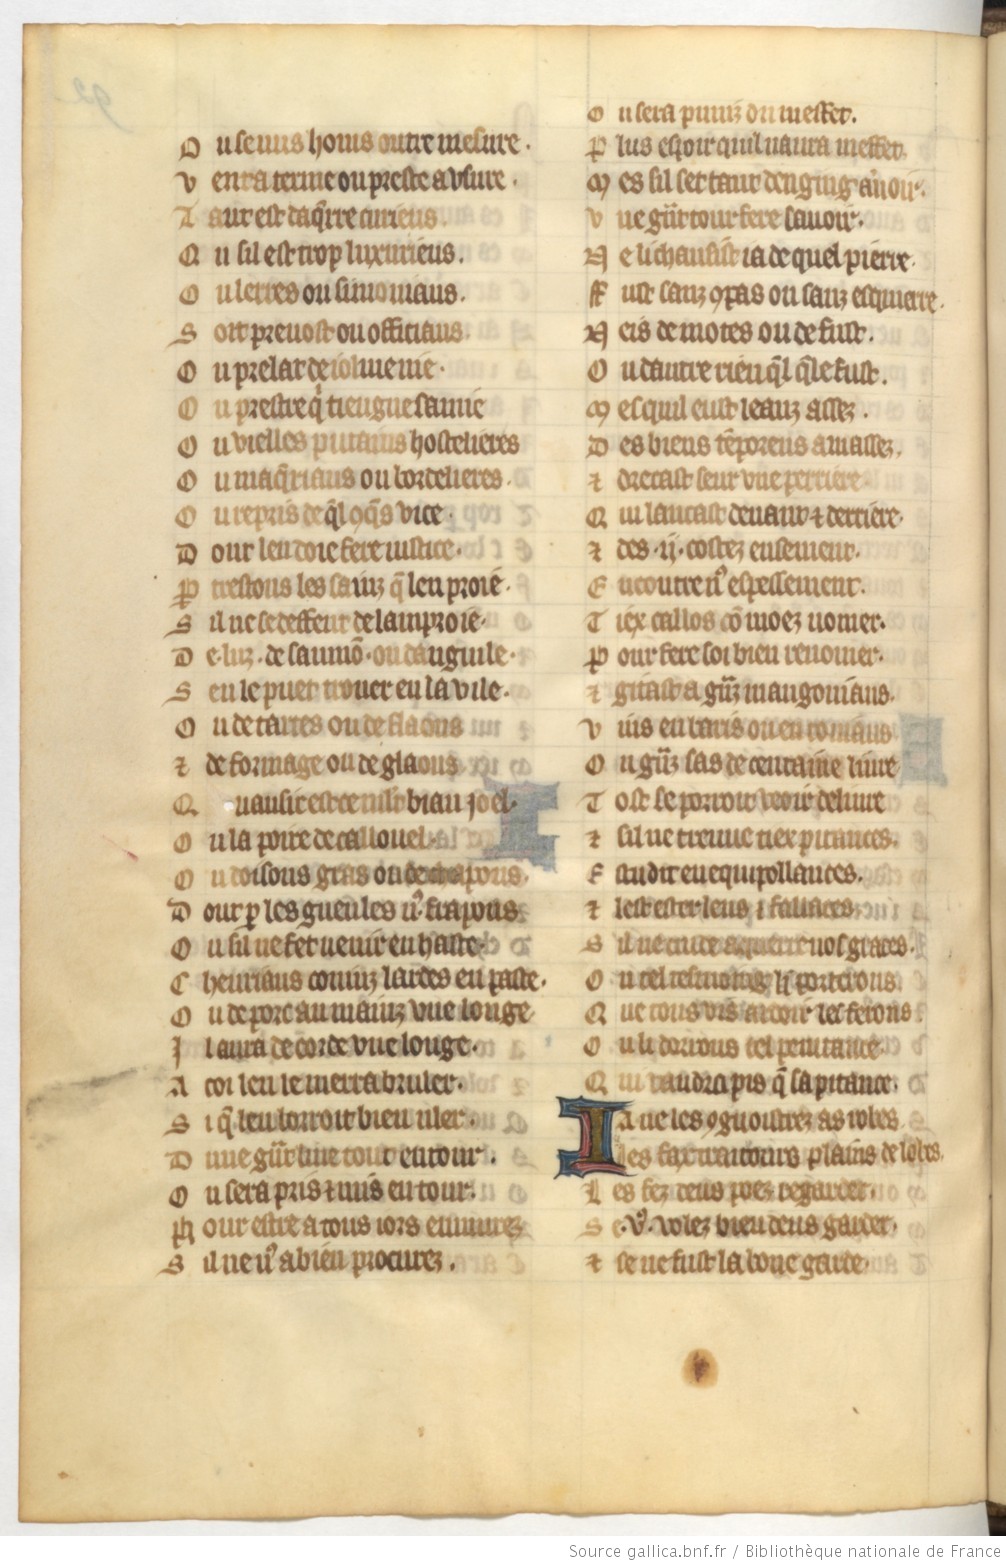 O u se nus homs outre mesure.
V ent a terme ou preste a usure.
T ant est daq̃rre curieus.
O u sil est trop luxurieus.
O u lerres ou simoniaus.
S oit prevost ou officiaus.
O u prelat de iolive vie.
O u prestre q̃ tiengne samie
O u vielles putains hostelieres
O u maq̃riaus ou bordelieres.
O u repris de q̃l ꝯq̃s vice.
D our leu doie fere iustice.
P trestouz les sainz q̃ leu proie.
S il ne se deffent de lamproie.
D e luz. de saumõ. ou danguile.
S en le puet trouer en la vile.
O u de tartes ou de flaons
⁊ de formage ou de glaons
Q uausit est ce mlt biau joel.
O u la poire de caillouel.
O u doisons gras ou de chapons.
D our p les gueules nꝰ frapons.
O u sil ne fet venir en haste.
C hevriaus connins lardes en paste.
O u de porc au mains une longe
I l aura de corde une longe.
A coi leu le menra bruler.
S i q̃ leu lorroit bien uler.
D une grñt liue tout entour.
O u sera pris ⁊ mis en tour.
P our estre a tous iors enmurez
S il ne nꝰ a bien procurez.
O u sera puniz du meffet.
P lus espoir quil naura meffet.
M es sil set tant denging avoir.
V ne grñt tour fere savoir.
N e li chausist ia de quel pierre.
F ust sanz ꝯpas ou sanz esquierre.
N eis de motes ou de fust.
O u dautre rien q̃l q̃le fust.
M es quil eust leanz assez.
D es biens tẽporeus amassez.
⁊ drecast seur une perriere.
Q ui lancast devant ⁊ derriere.
⁊ des .ij. costez ensement.
E ncontre nꝰ espessement.
T iex callos cõ moez nomer.
P our fere soi bien renomer.
⁊ gitast a grñz mangoniaus.
V ins en baris ou en toniaus
O u grñz sas de centaine livre
T ost se porroit veoir delivre
⁊ sil ne treuve tiex pitances.
E studit en equipollances.
⁊ lest ester leus ⁊ fallaces.
S il ne cuide aquerre nos graces.
O u tel tesmoing li porterons.
Q ue tous vis ardoir les ferons.
O u li dorrons tel penitance.
Q ui vaudra pis q̃ sa pitance.
I a ne les ꝯgnoistrez as robes
Les fax traitours plains de lobes.
L es fez deus poez regarder.
S e .vꝰ. volez bien deus garder.
⁊ se ne fust la bone garde.